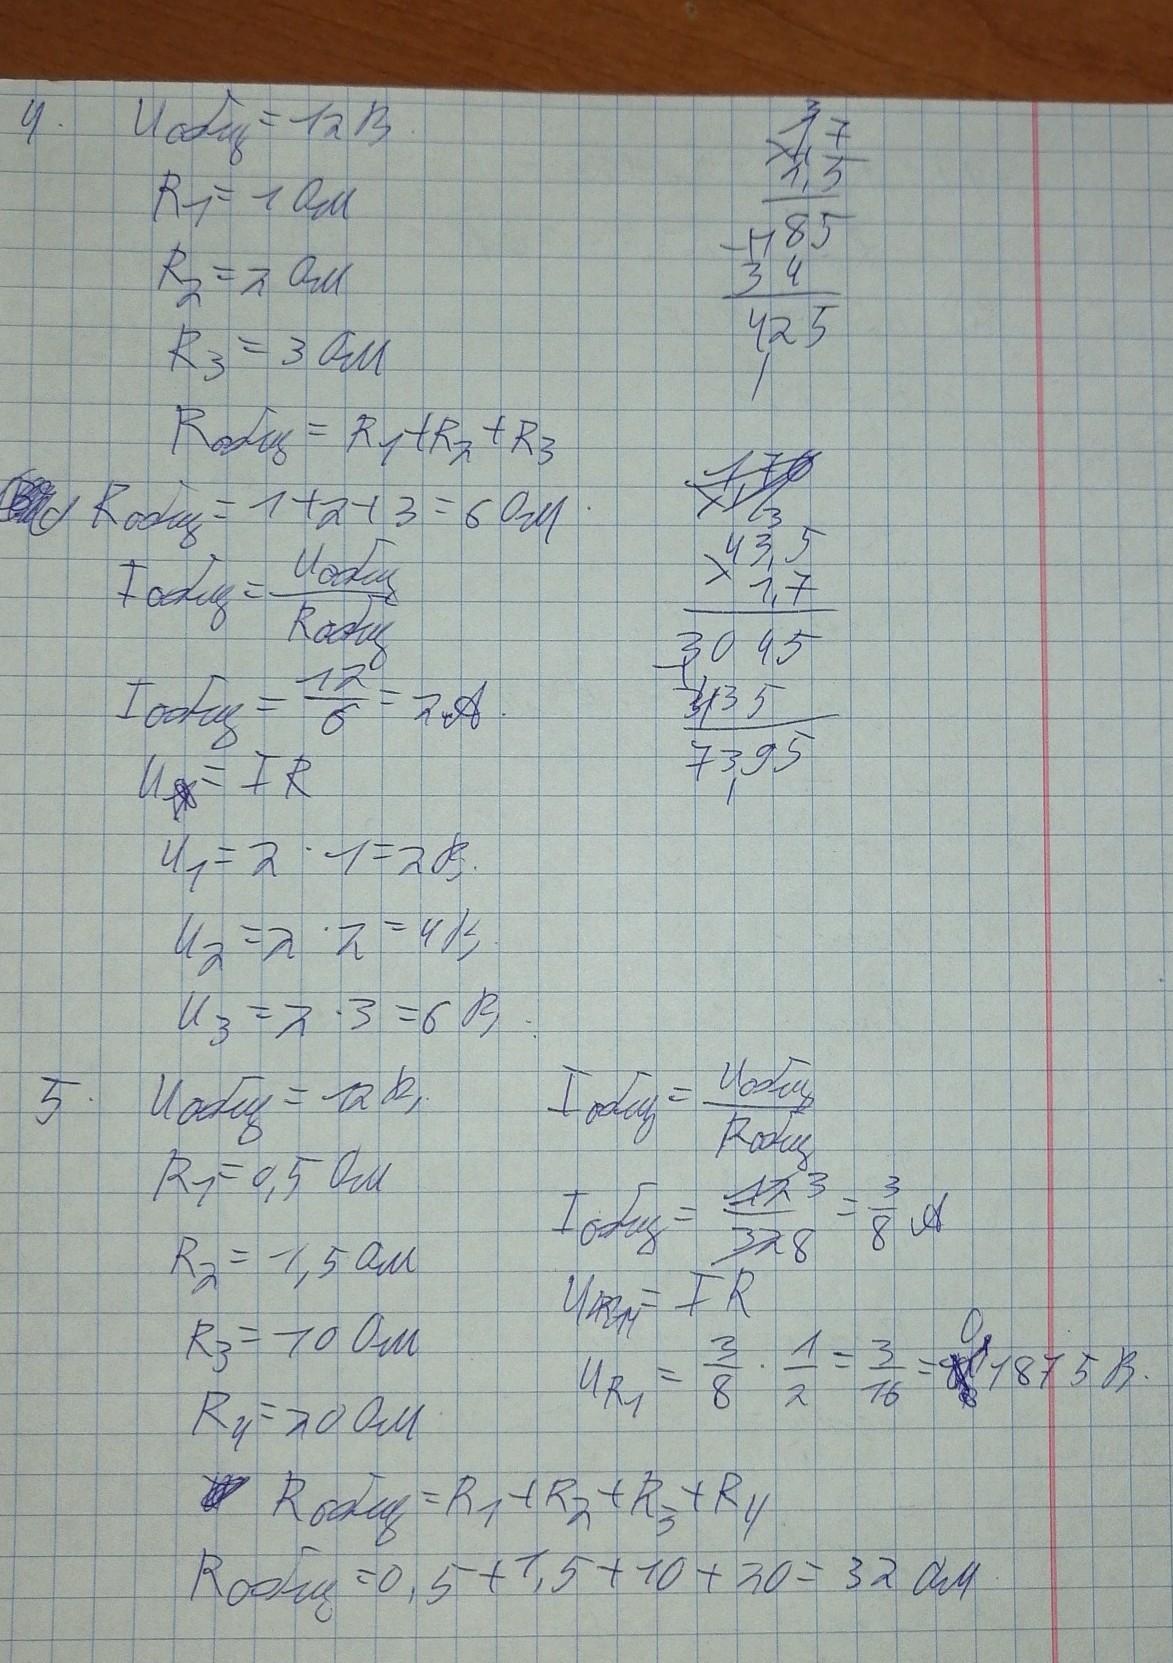 4. Uобщ = 12 В.
R1 = 1 Ом
R2 = 2 Ом
R3 = 3 Ом
Rобщ = R1 + R2 + R3
Rобщ = 1 + 2 + 3 = 6 Ом.
Iобщ = Uобщ / Rобщ
Iобщ = 12 / 6 = 2 А.
U = I R
U1 = 2 · 1 = 2 В.
U2 = 2 · 2 = 4 В
U3 = 2 · 3 = 6 В.
85
34
425
3
43,5
× 1,7
3045
435
7395
5. Uобщ = 12 В.
R1 = 0,5 Ом
R2 = 1,5 Ом
R3 = 10 Ом
R4 = 20 Ом
Rобщ = R1 + R2 + R3 + R4
Rобщ = 0,5 + 1,5 + 10 + 20 = 32 Ом
Iобщ = Uобщ / Rобщ
Iобщ = 12 3 / 32 8 = 3/8 А
U = I R
UR1 = 3/8 · 1/2 = 3/16 = 0,1875 В.